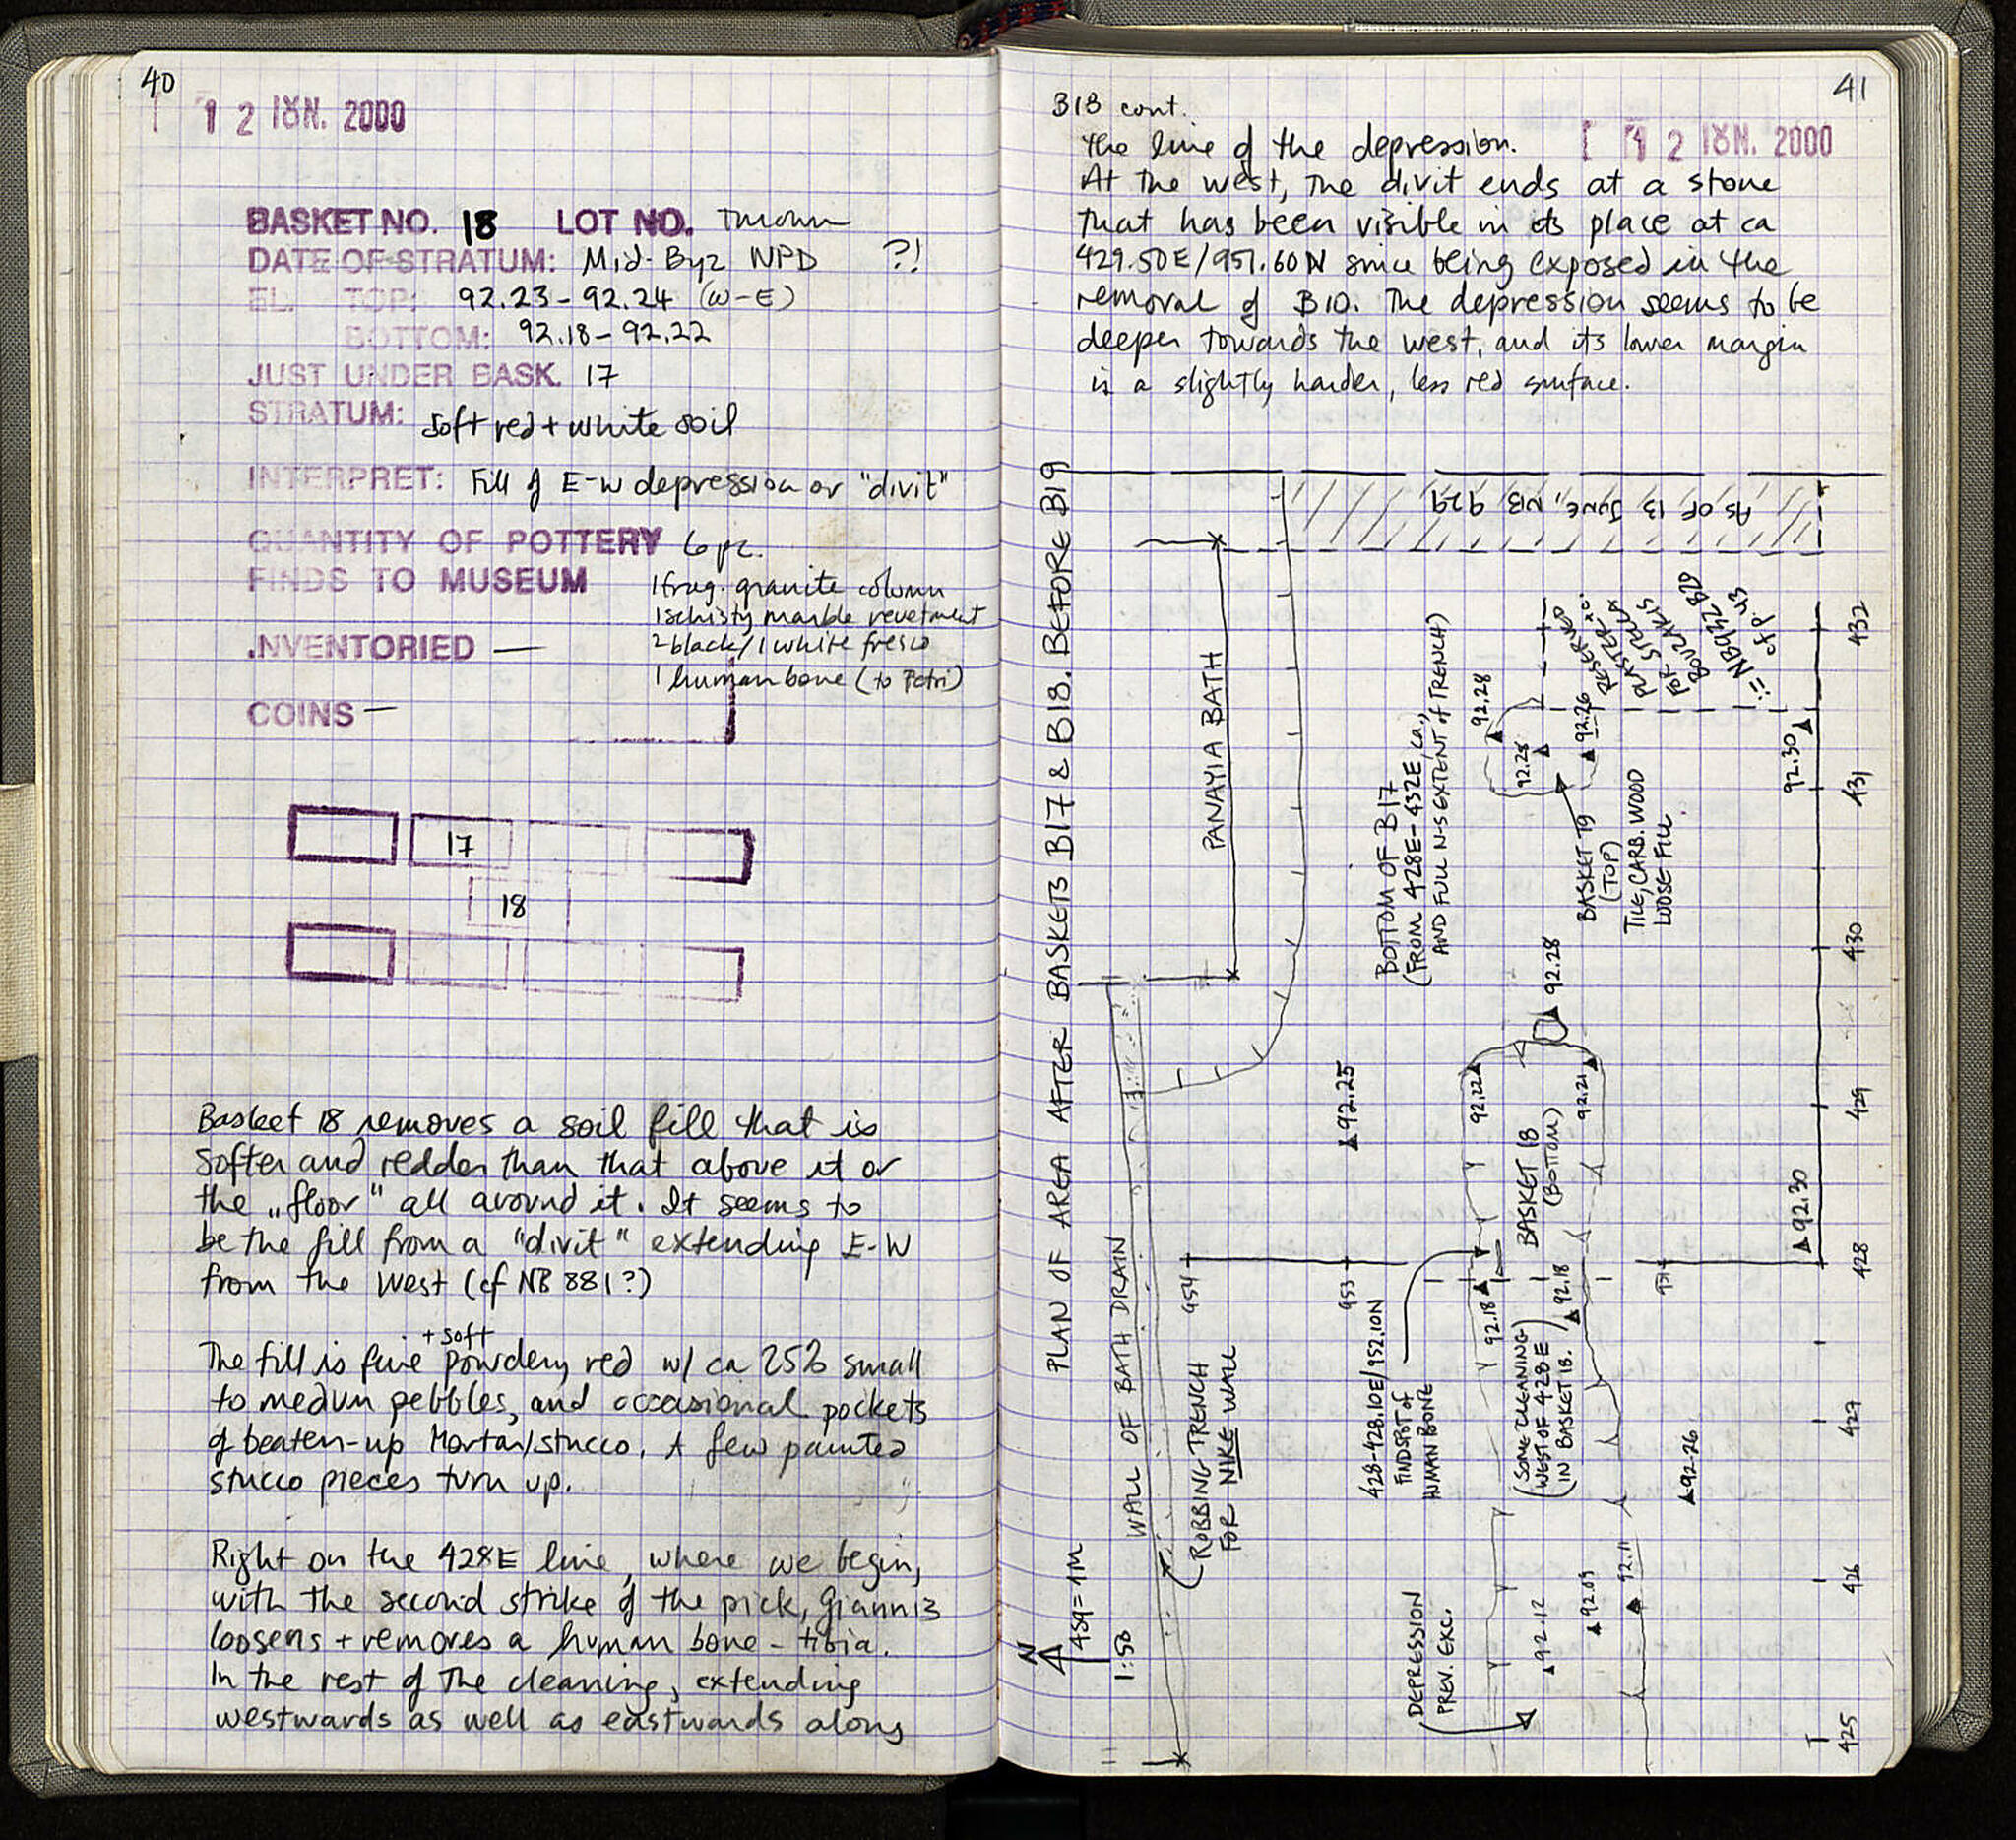 40
1 2 ΙΟΥΝ. 2000
BASKET NO. 18 LOT NO. Thrown
DATE OF STRATUM: Mid-Byz NPD ?!
EL. TOP: 92.23-92.24 (W-E)
BOTTOM: 92.18-92.22
JUST UNDER BASK. 17
STRATUM: soft red + white soil
INTERPRET: Fill of E-W depression or "divit"
QUANTITY OF POTTERY 6 pc.
FINDS TO MUSEUM 1 frag. granite column
1 schisty marble revetment
2 black/1 white fresco
1 human bone (to Petri)
INVENTORIED —
COINS —
17
18
Basket 18 removes a soil fill that is
softer and redder than that above it or
the „floor" all around it. It seems to
be the fill from a "divit" extending E-W
from the west (cf NB 881?)
The fill is fine + soft powdery red w/ ca 25% small
to medum pebbles, and occasional pockets
of beaten-up Mortar/stucco. A few painted
stucco pieces turn up.
Right on the 428E line, where we begin,
with the second strike of the pick, Giannis
loosens + removes a human bone - tibia.
In the rest of the cleaning, extending
westwards as well as eastwards along
41
B18 cont.
1 2 ΙΟΥΝ. 2000
the line of the depression.
At the west, the divit ends at a stone
that has been visible in its place at ca
429.50E/951.60N since being exposed in the
removal of B10. The depression seems to be
deeper towards the west, and its lower margin
is a slightly harder, less red surface.
PLAN OF AREA AFTER BASKETS B17 & B18. BEFORE B19
N
4SQ = 1M
1:50
AS OF 13 JUNE, NB 929
PANAYIA BATH
WALL OF BATH DRAIN
(ROBBING TRENCH
FOR NIKE WALL
BOTTOM OF B17
(FROM 428E-432E, ca.,
AND FULL N-S EXTENT of TRENCH)
RESERVED
PLASTER
FOR SPYLLA
BOULAKIS
:= NB 932 B20
cf P. 43
92.28
92.28
92.26
92.30
BASKET 19
(TOP)
TILE, CARB. WOOD
LOOSE FILL
92.28
92.25
92.22
92.21
BASKET 18
(BOTTOM)
92.30
954
953
951
92.18
92.18
428-428.10E/952.10N
FINDSPOT of
HUMAN BONE
(SOME CLEANING
WEST OF 428E
IN BASKET 18.)
92.26
DEPRESSION
PREV. EXC.
92.12
92.09
92.11
432
431
430
429
428
427
426
425